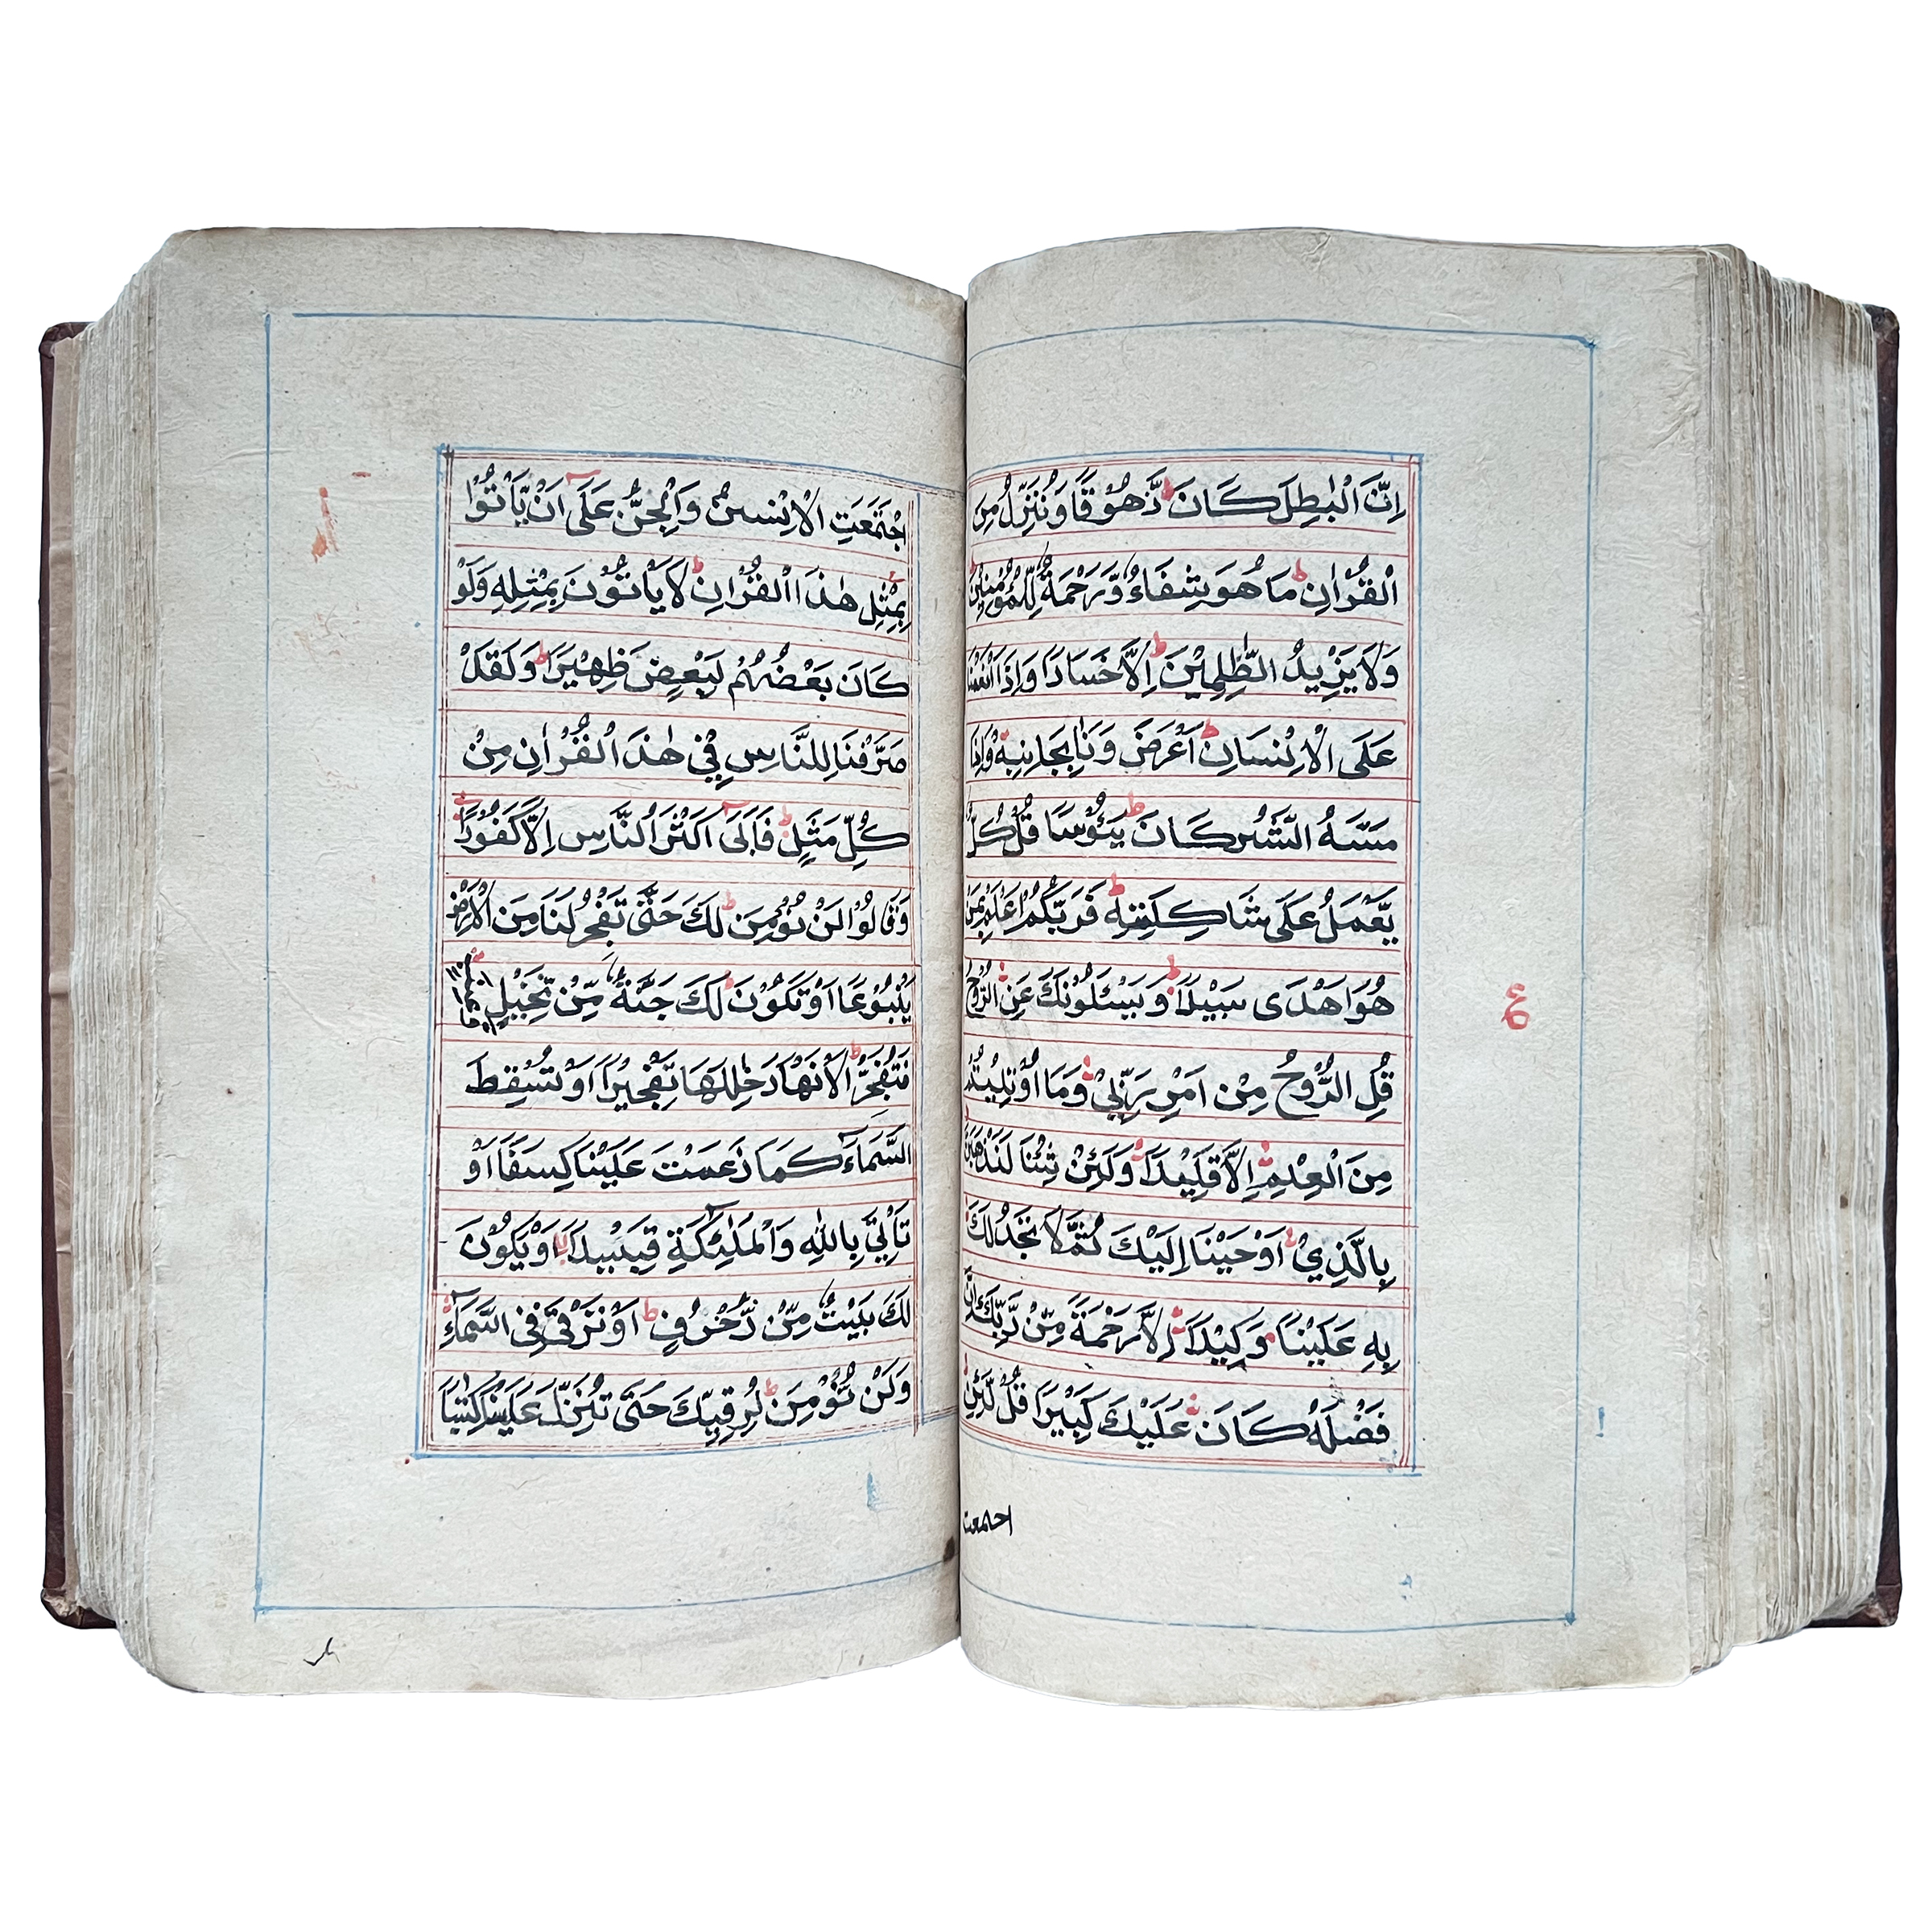 اِنَّ الْبٰطِلَ كَانَ زَهُوْقًا وَنُنَزِّلُ مِنَ
الْقُرْاٰنِ مَا هُوَ شِفَاءٌ وَّرَحْمَةٌ لِّلْمُؤْمِنِيْنَ
وَلَا يَزِيْدُ الظّٰلِمِيْنَ اِلَّا خَسَارًا وَاِذَا اَنْعَمْنَا
عَلَى الْاِنْسَانِ اَعْرَضَ وَنَاٰ بِجَانِبِهٖ وَاِذَا
مَسَّهُ الشَّرُّ كَانَ يَئُوْسًا قُلْ كُلٌّ
يَّعْمَلُ عَلٰى شَاكِلَتِهٖ فَرَبُّكُمْ اَعْلَمُ بِمَنْ
هُوَ اَهْدٰى سَبِيْلًا وَيَسْئَلُوْنَكَ عَنِ الرُّوْحِ
ع
قُلِ الرُّوْحُ مِنْ اَمْرِ رَبِّيْ وَمَا اُوْتِيْتُمْ
مِنَ الْعِلْمِ اِلَّا قَلِيْلًا وَلَئِنْ شِئْنَا لَنَذْهَبَنَّ
بِالَّذِيْ اَوْحَيْنَا اِلَيْكَ ثُمَّ لَا تَجِدُ لَكَ
بِهٖ عَلَيْنَا وَكِيْلًا اِلَّا رَحْمَةً مِّنْ رَّبِّكَ اِنَّ
فَضْلَهٗ كَانَ عَلَيْكَ كَبِيْرًا قُلْ لَّئِنِ
اجتمعت
اجْتَمَعَتِ الْاِنْسُ وَالْجِنُّ عَلٰى اَنْ يَّاْتُوْا
بِمِثْلِ هٰذَا الْقُرْاٰنِ لَا يَاْتُوْنَ بِمِثْلِهٖ وَلَوْ
كَانَ بَعْضُهُمْ لِبَعْضٍ ظَهِيْرًا وَلَقَدْ
صَرَّفْنَا لِلنَّاسِ فِيْ هٰذَا الْقُرْاٰنِ مِنْ
كُلِّ مَثَلٍ فَاَبٰى اَكْثَرُ النَّاسِ اِلَّا كُفُوْرًا
وَقَالُوْا لَنْ نُّؤْمِنَ لَكَ حَتّٰى تَفْجُرَ لَنَا مِنَ الْاَرْضِ
يَنْبُوْعًا اَوْ تَكُوْنَ لَكَ جَنَّةٌ مِّنْ نَّخِيْلٍ
فَتُفَجِّرَ الْاَنْهٰرَ خِلٰلَهَا تَفْجِيْرًا اَوْ تُسْقِطَ
السَّمَاءَ كَمَا زَعَمْتَ عَلَيْنَا كِسَفًا اَوْ
تَاْتِيَ بِاللّٰهِ وَالْمَلٰئِكَةِ قَبِيْلًا اَوْ يَكُوْنَ
لَكَ بَيْتٌ مِّنْ زُخْرُفٍ اَوْ تَرْقٰى فِى السَّمَاءِ
وَلَنْ نُّؤْمِنَ لِرُقِيِّكَ حَتّٰى تُنَزِّلَ عَلَيْنَا كِتٰبًا